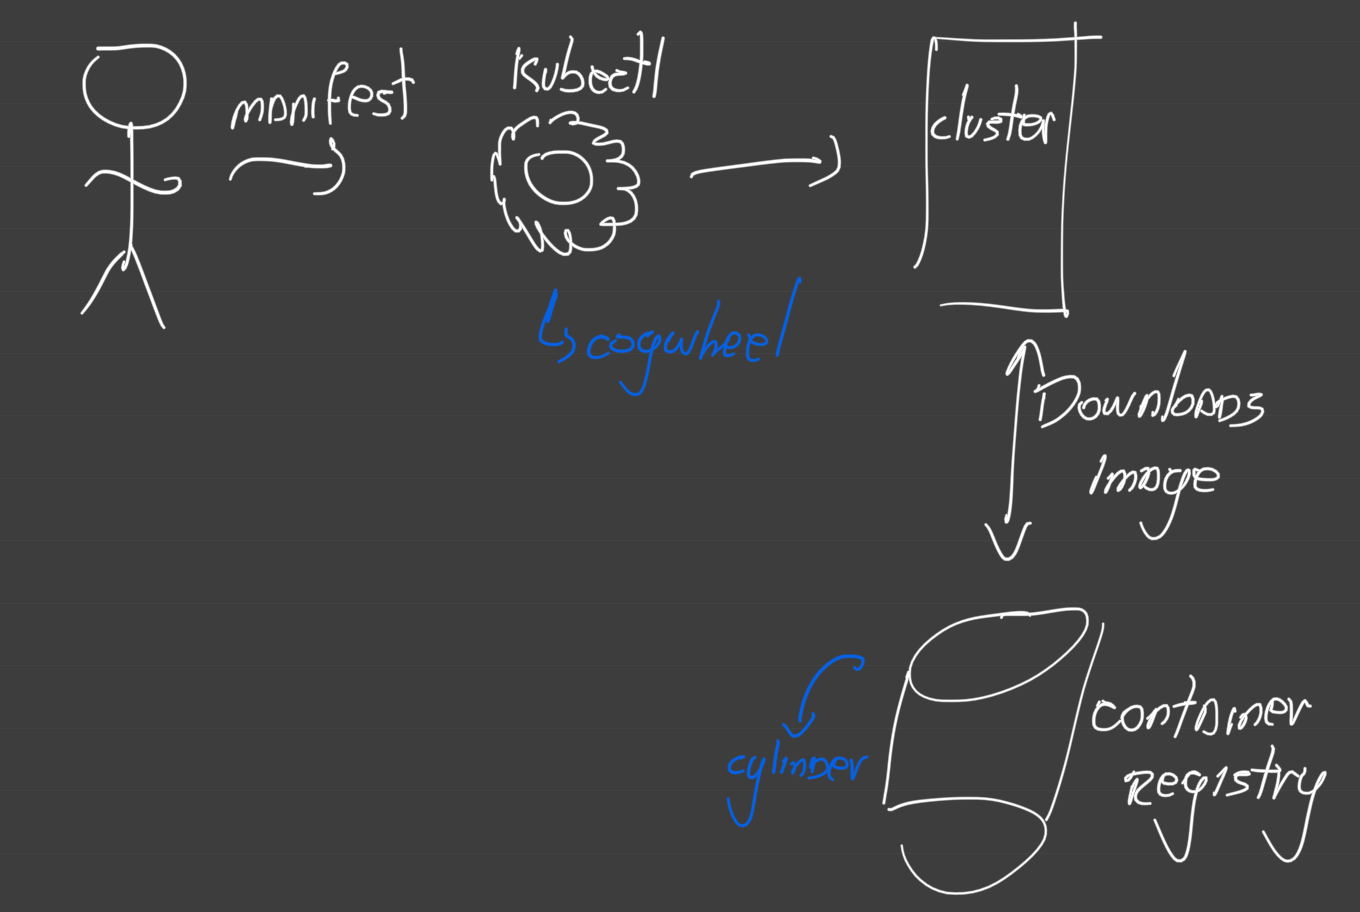 manifest
Kubectl
cluster
cogwheel
Downloads
Image
cylinder
container
Registry